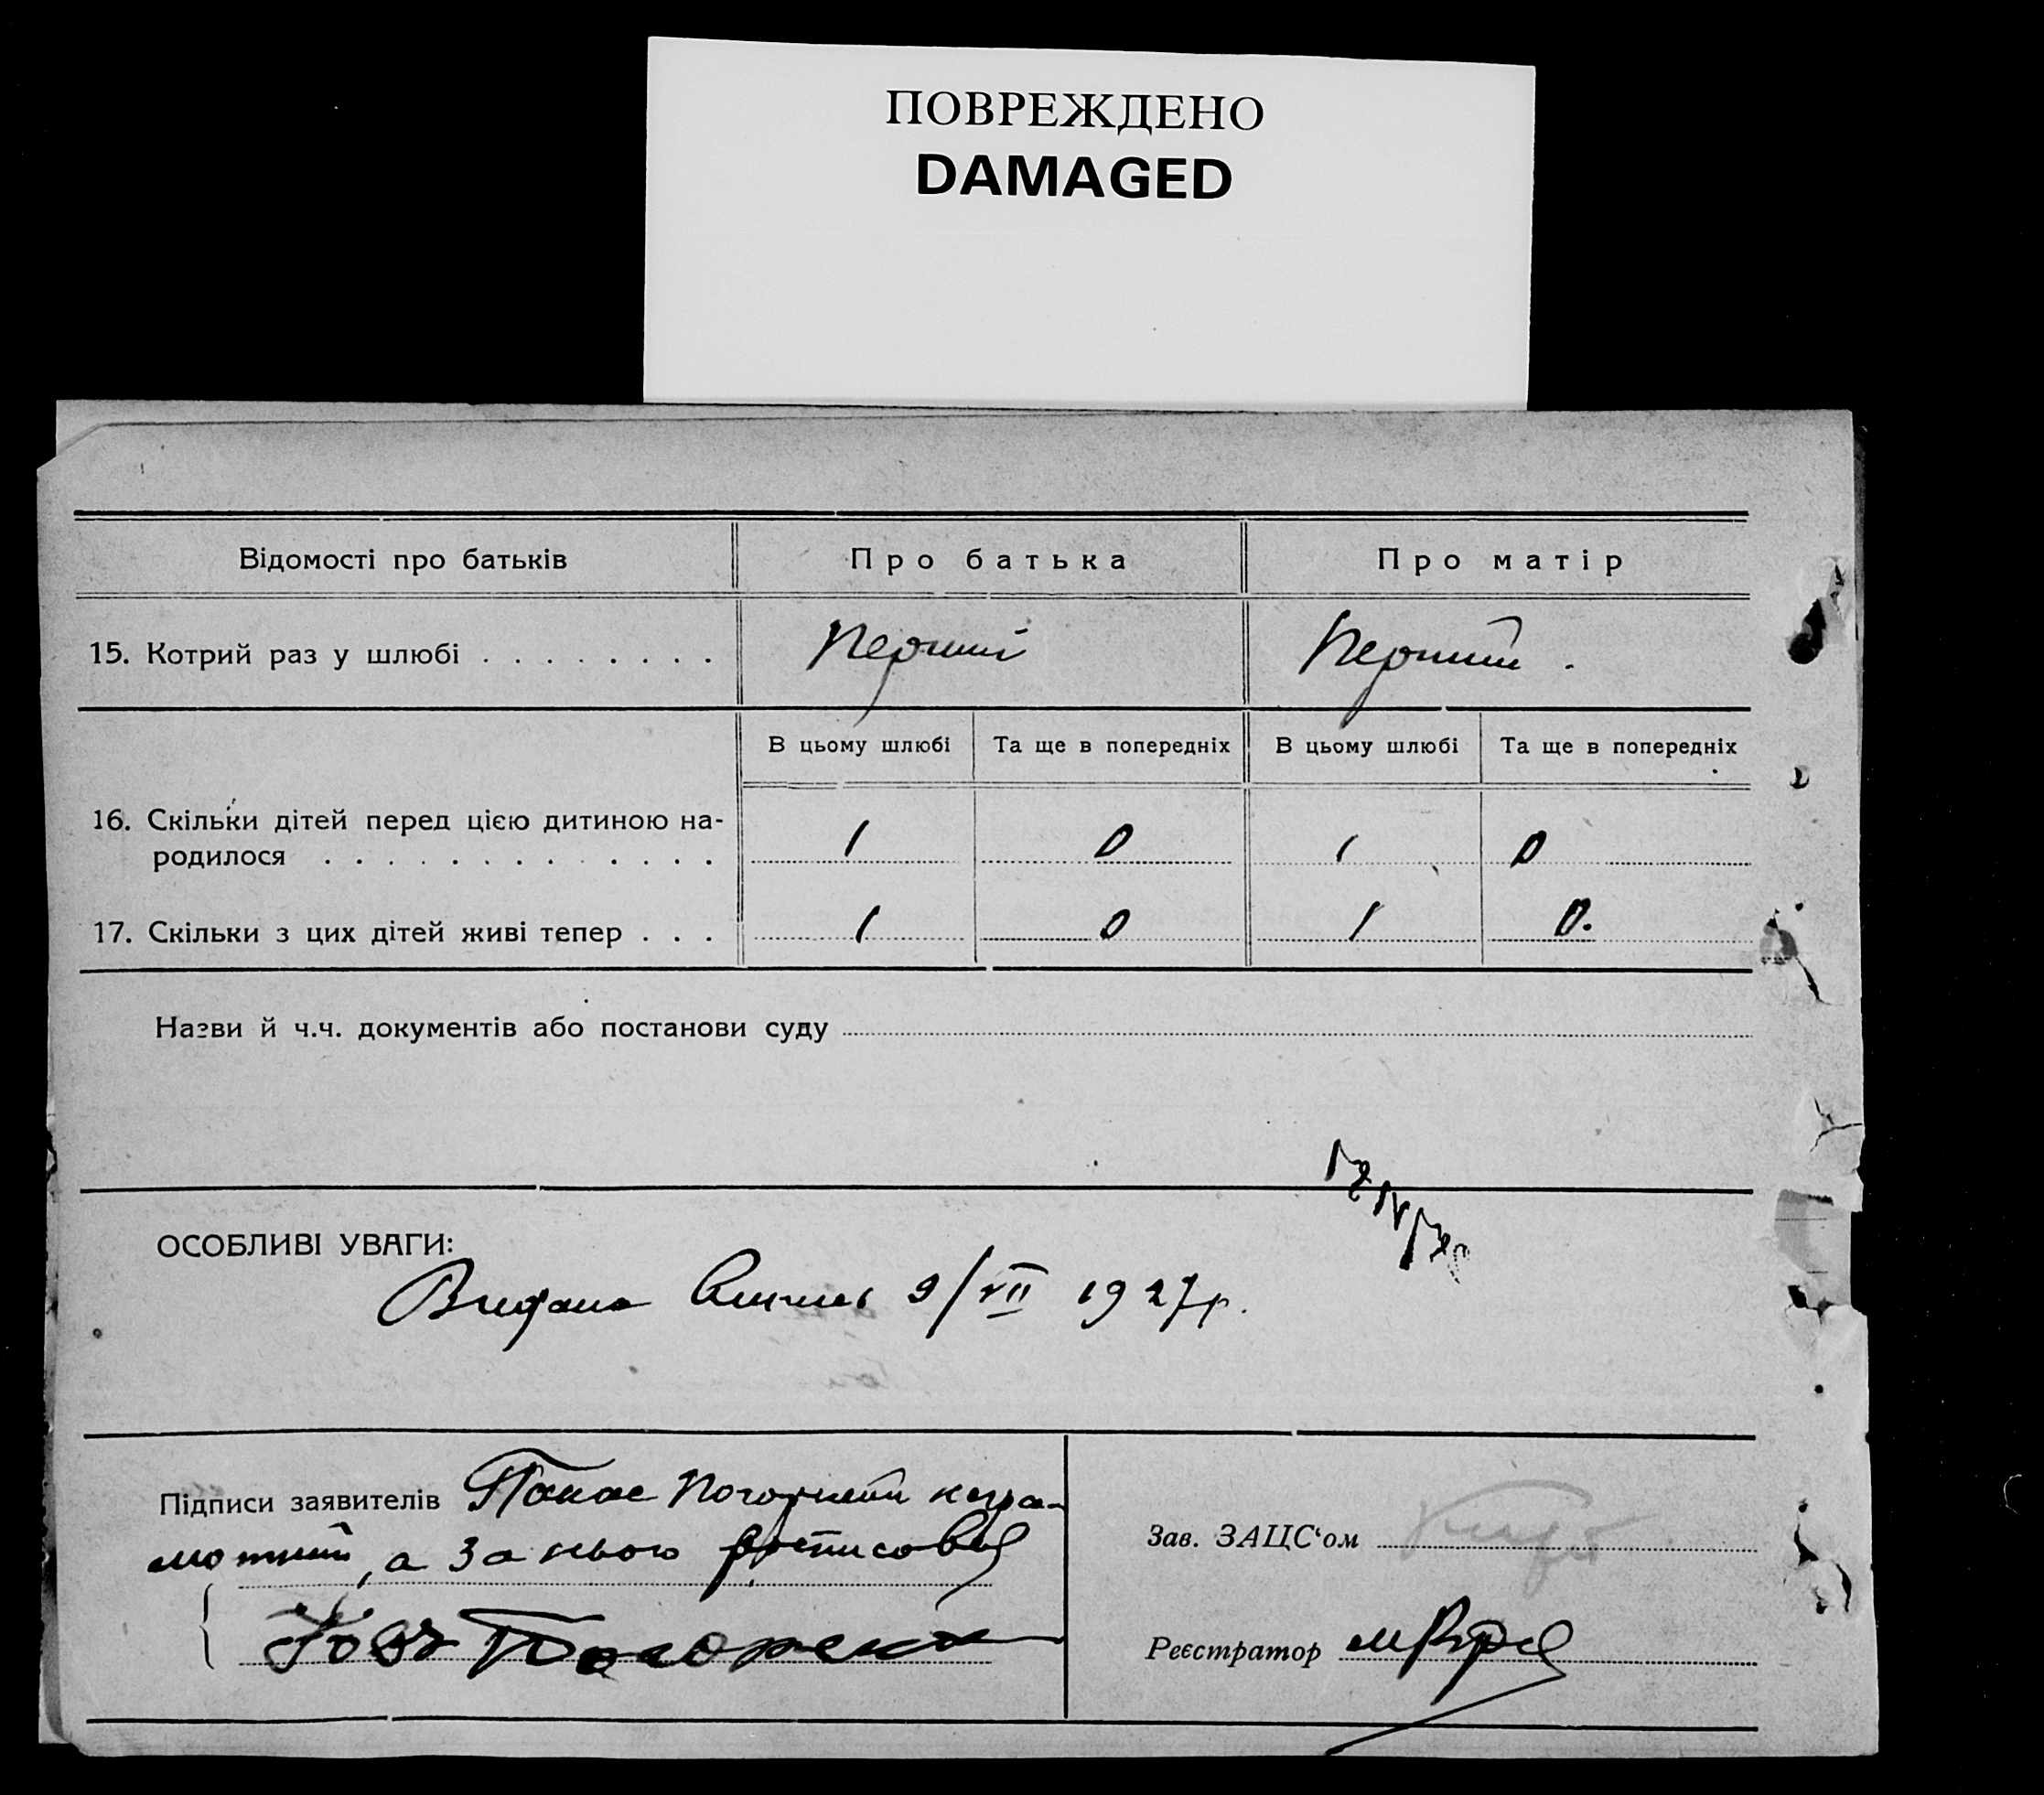 ПОВРЕЖДЕНО
DAMAGED
Відомості про батьків Про батька Про матір
15. Котрий раз у шлюбі . . . . . . . . Перший Перший .
В цьому шлюбі Та ще в попередніх В цьому шлюбі Та ще в попередніх
16. Скільки дітей перед цією дитиною на-
родилося . . . . . . . . . . . . . 1 0 1 0
17. Скільки з цих дітей живі тепер . . . 1 0 1 0.
Назви й ч.ч. документів або постанови суду
ОСОБЛИВІ УВАГИ:
Видана 9/VII 1927р.
Підписи заявителів Панас негра-
мотний, а за нього
Зав. ЗАЦС‘ом
Реєстратор